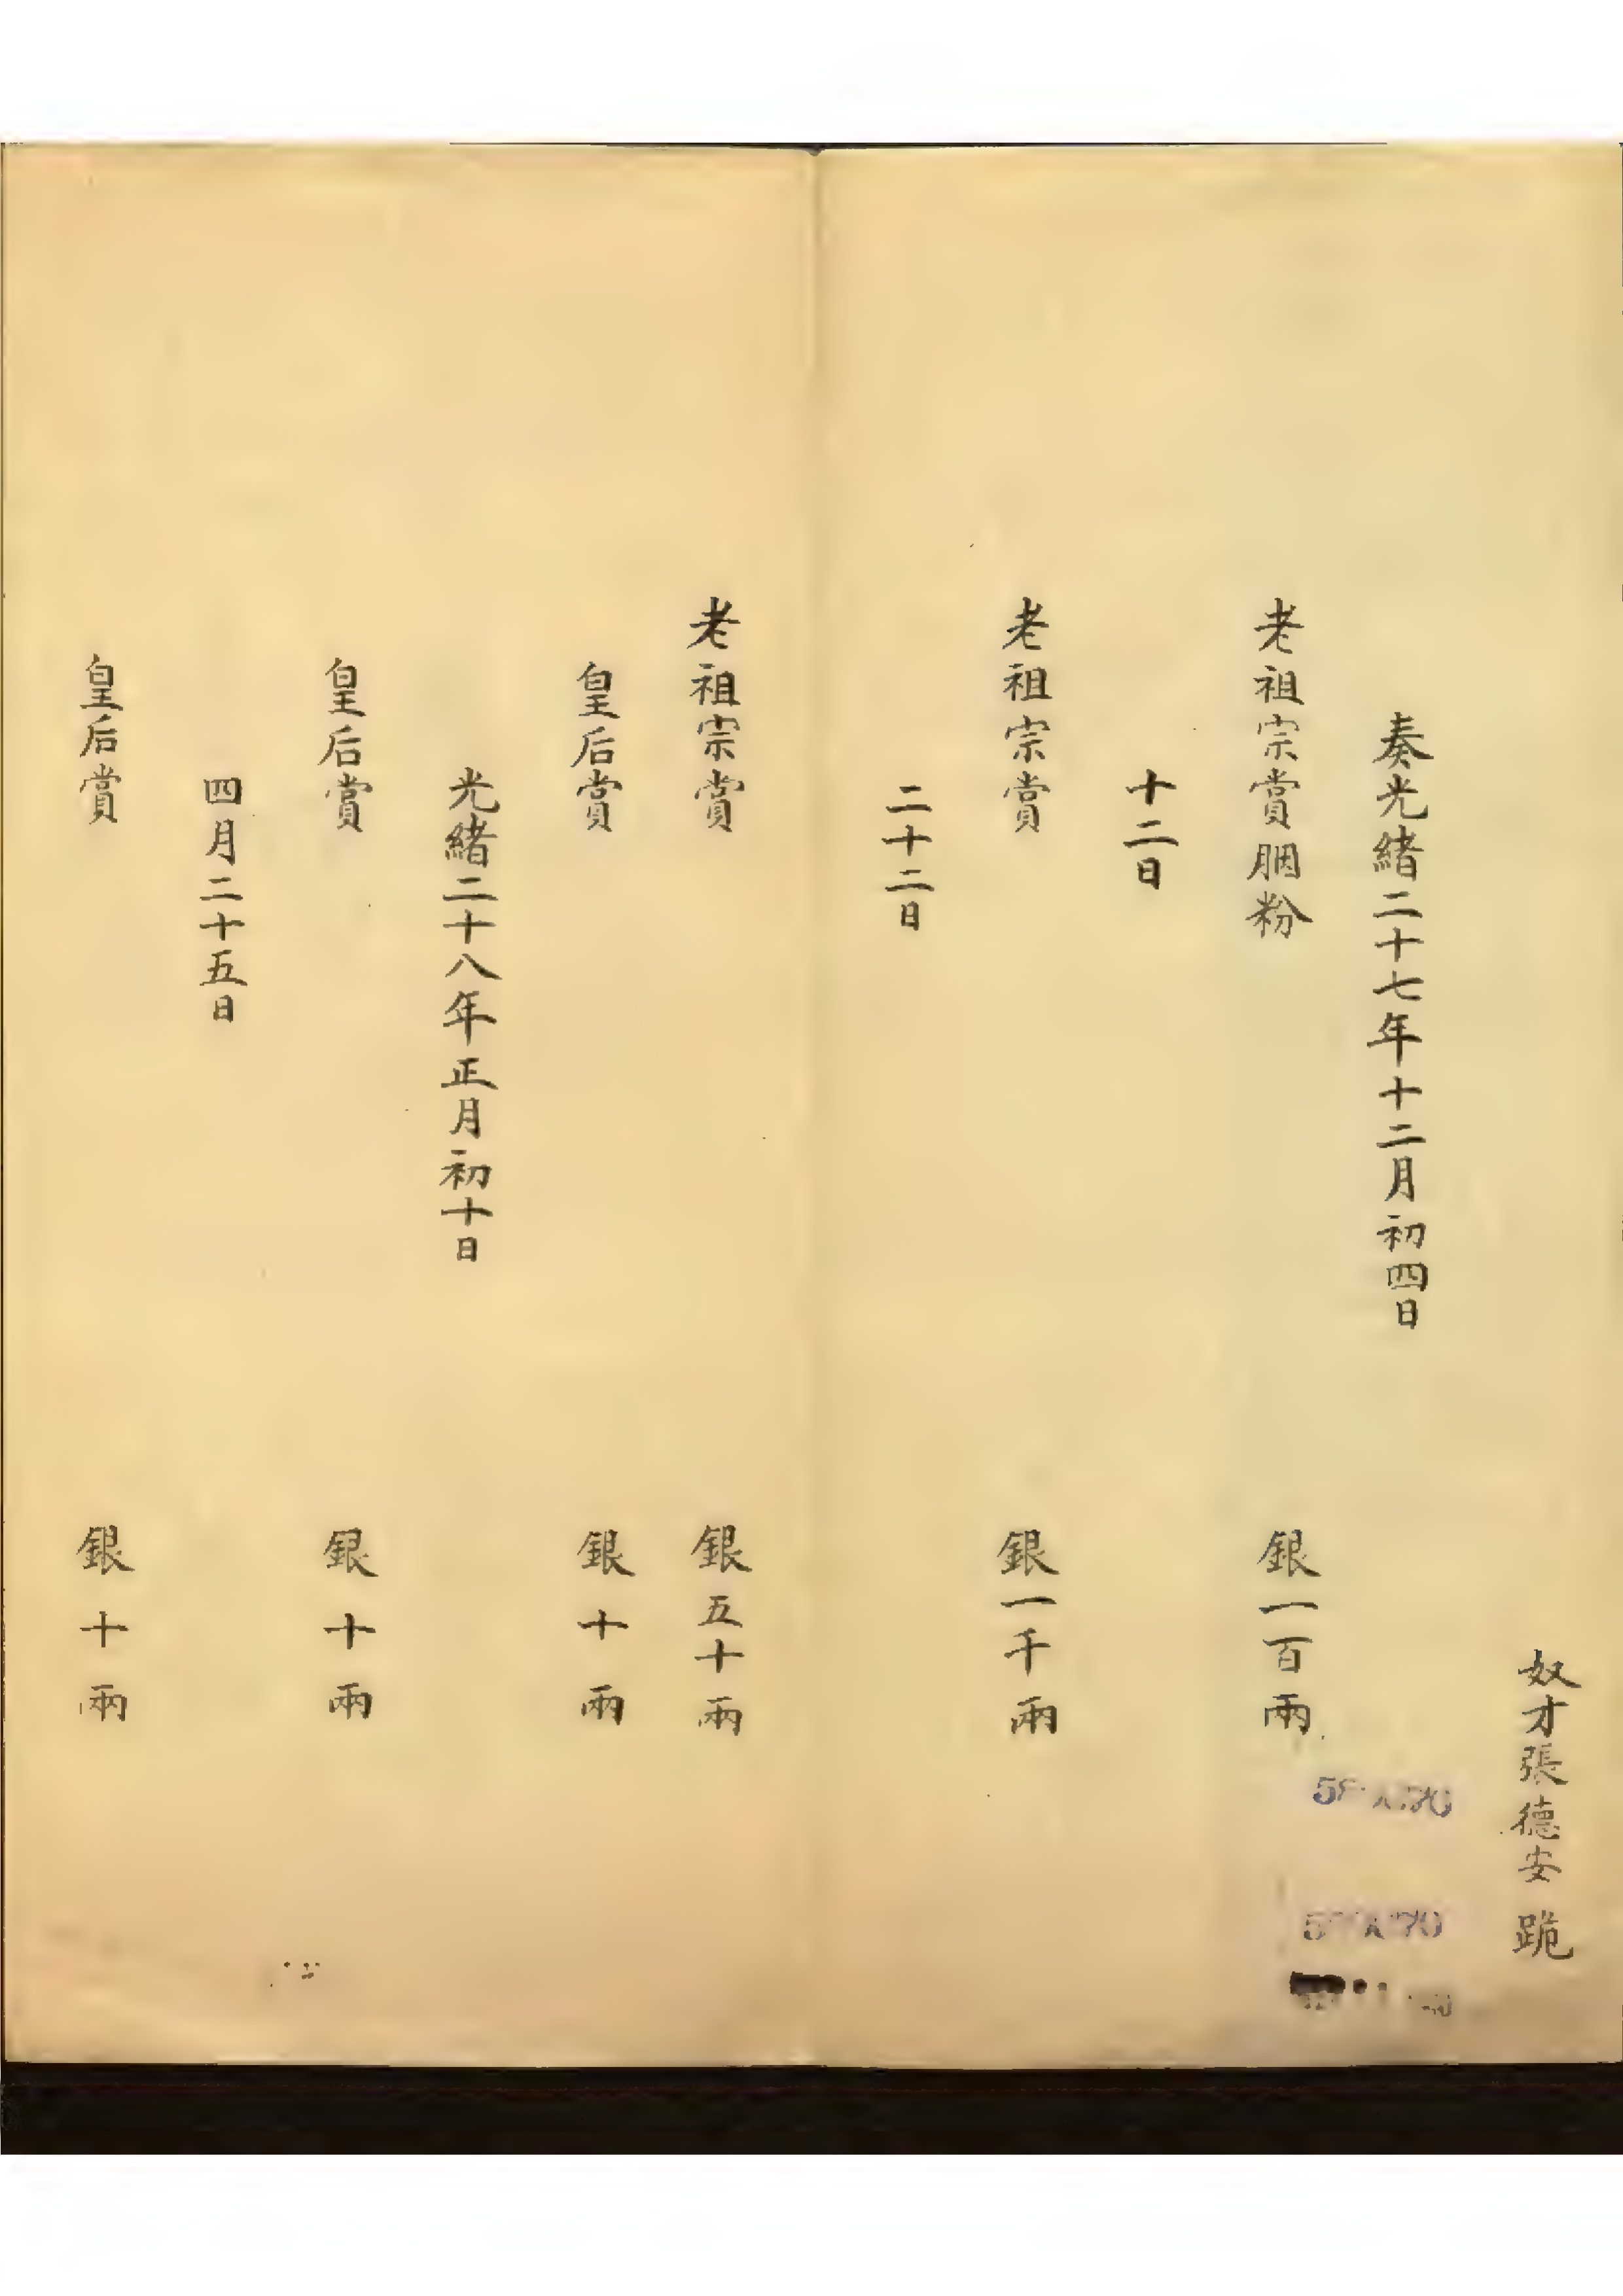 奴才張德安 跪
奏光緒二十七年十二月初四日
老祖宗賞胭粉 銀一百兩
十二日
老祖宗賞 銀一千兩
二十二日
老祖宗賞 銀五十兩
皇后賞 銀十兩
光緒二十八年正月初十日
皇后賞 銀十兩
四月二十五日
皇后賞 銀十兩